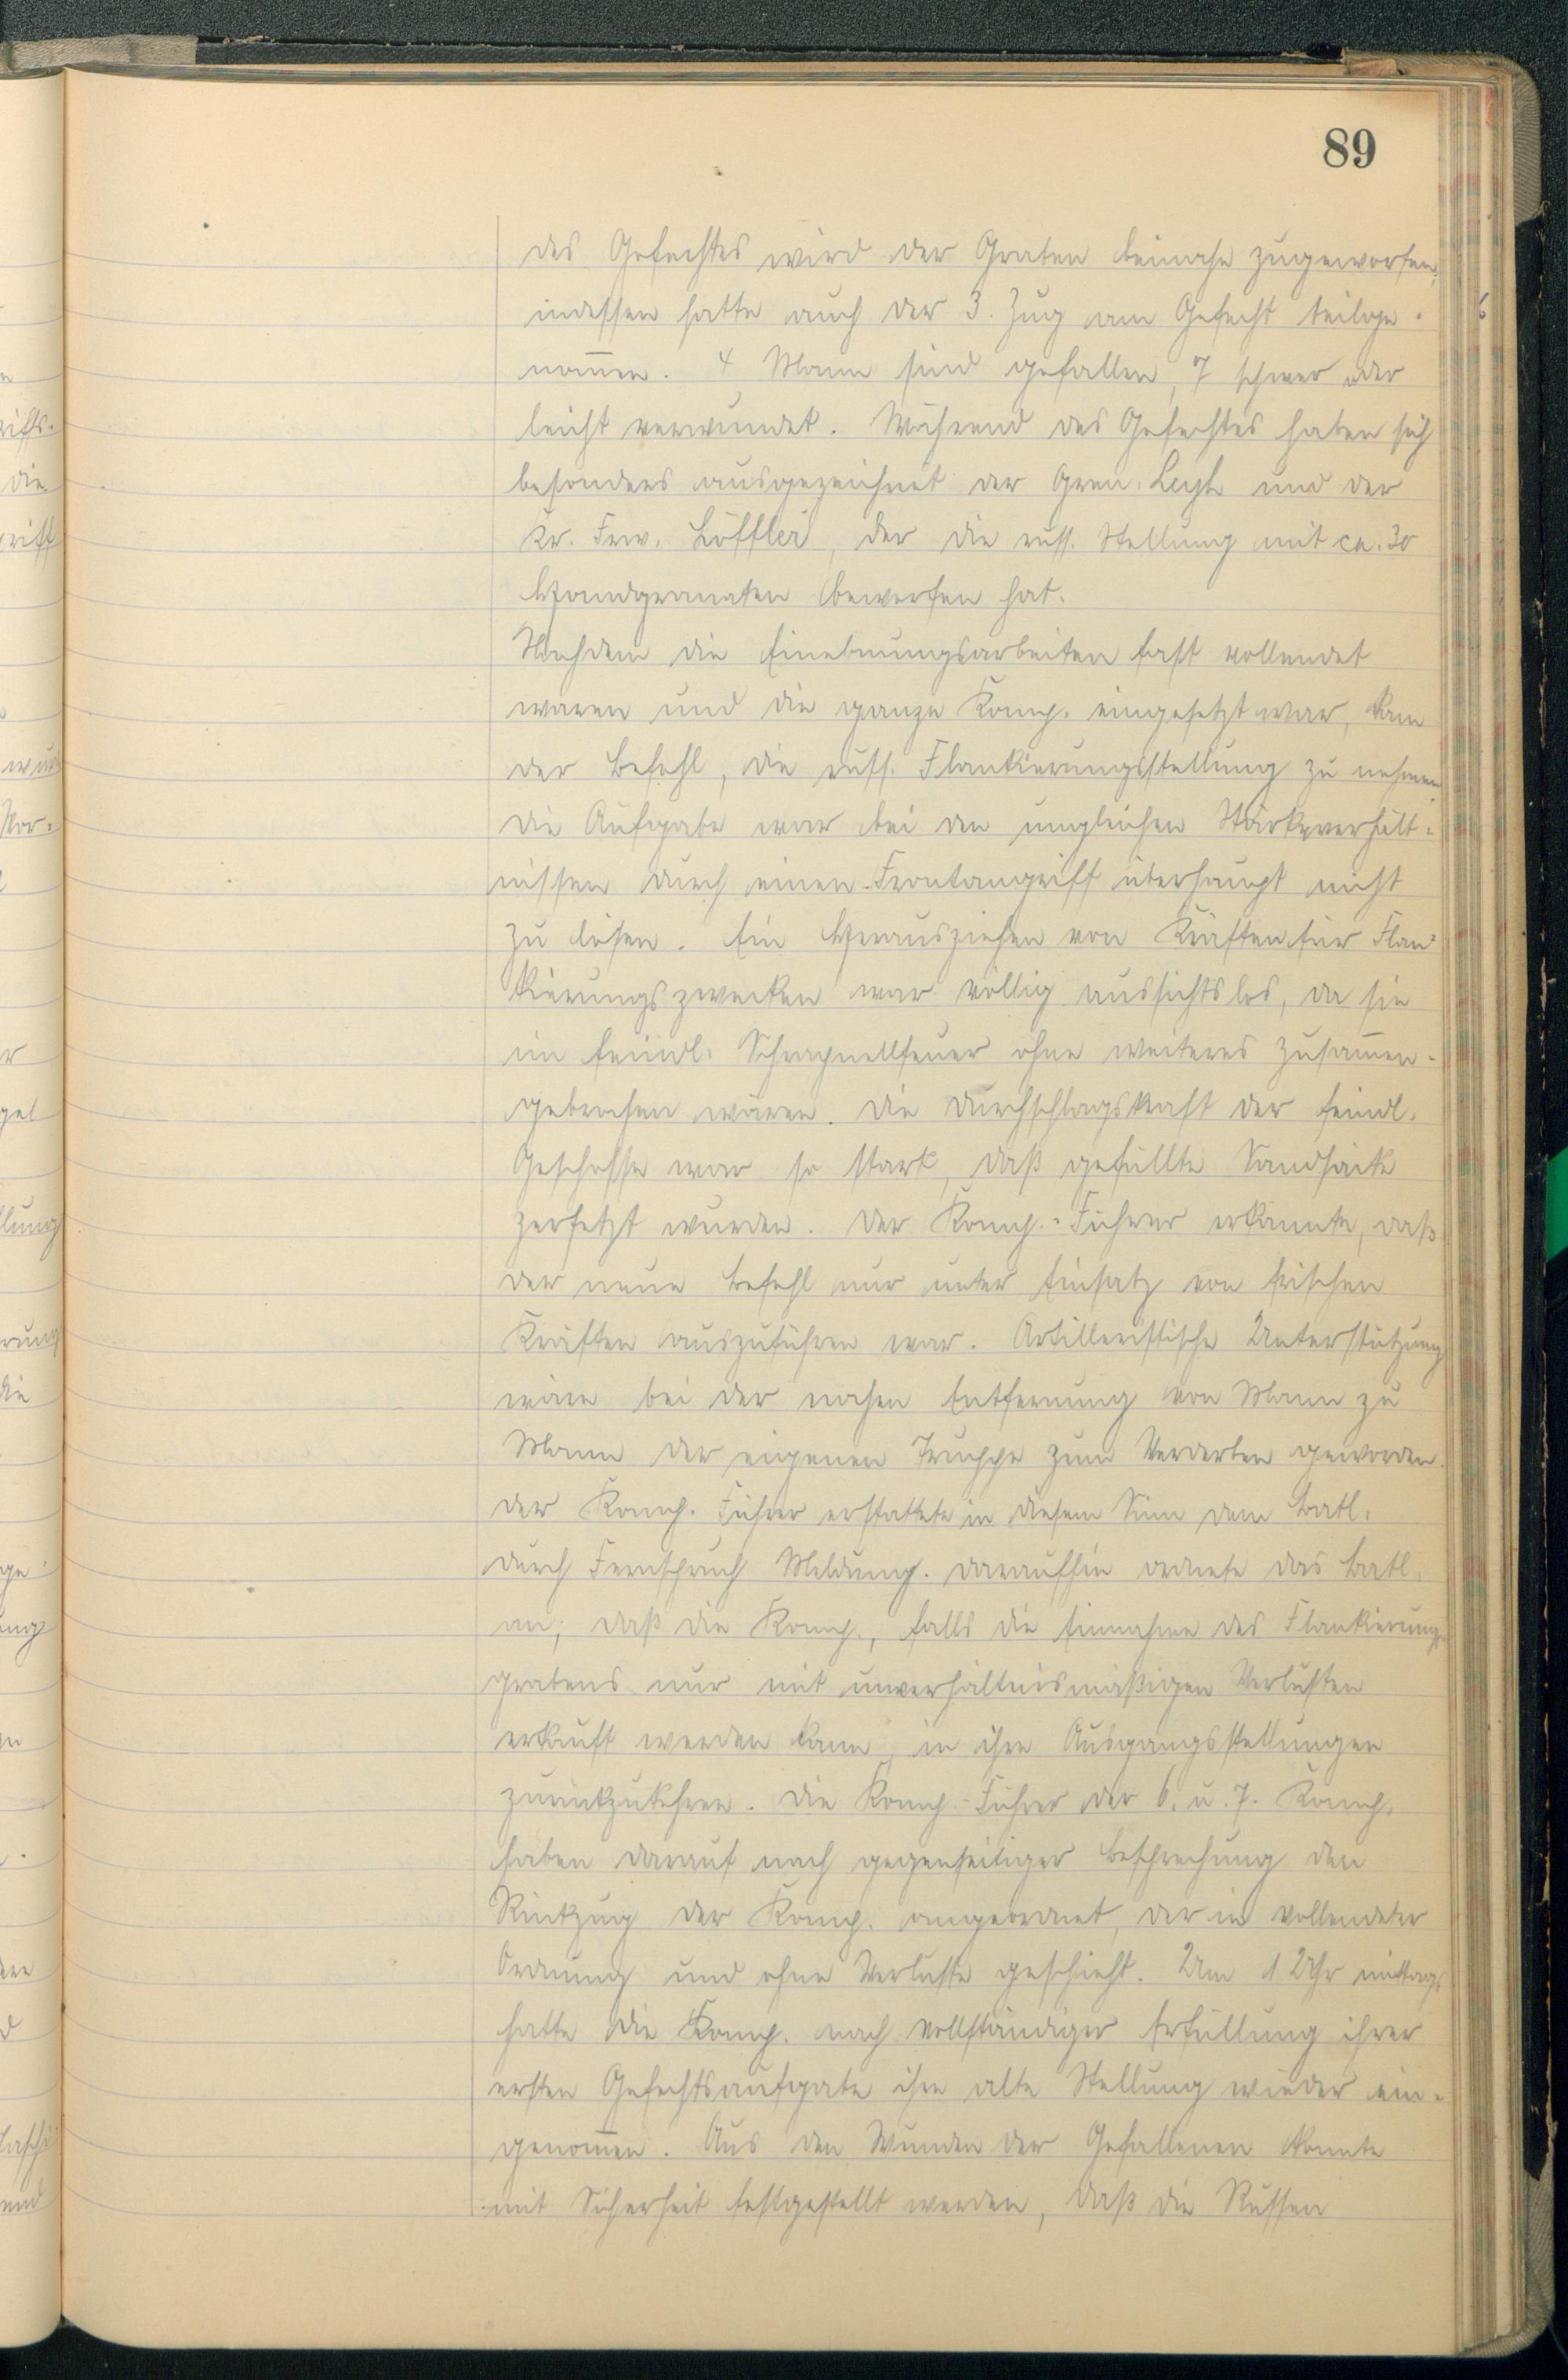 89
des Gefechtes wird der Graben beinahe zugeworfen,
indessen hatte auch der 3. Zug am Gefecht teilge-
nom̅en. 4 Mann sind gefallen, 7 schwer oder
leicht verwundet. Während des Gefechtes haben sich
besonders ausgezeichnet der Gren. und der
Kr. Frw. Löffler, der die russ. Stellung mit ca. 30
Handgranaten beworfen hat.
Nachdem die Einebnungsarbeiten fast vollendet
waren und die ganze Komp. eingesetzt war, kam
der Befehl, die russ. Flankierungsstellung zu nehmen.
Die Aufgabe war bei den ungleichen Stärkeverhält-
nissen durch einen Frontangriff überhaupt nicht
zu lösen. Ein Herausziehen von Kräften für Flan-
kierungszwecken war völlig aussichtslos, da sie
im feindl. Schrapnellfeuer ohne weiteres zusam̅en-
gebrochen wären. Die Durchschlagskraft der feindl.
Geschosse war so stark, daß gefüllte Sandsäcke
zerfetzt wurden. Der Komp.-Führer erkannte, daß
der neue Befehl nur unter Einsatz von frischen
Kräften auszuführen war. Artilleristische Unterstützung
wäre bei der nahen Entfernung von Mann zu
Mann der eigenen Truppe zum Verderben geworden.
Der Komp. Führer erstattete in diesem Sinn dem Batl.
durch Fernspruch Meldung. Daraufhin ordnete das Batl.
an, daß die Komp., falls die Einnahme des Flankierungs-
grabens nur mit unverhältnismäßigen Verlusten
erkauft werden kann, in ihre Ausgangsstellungen
zurückzukehren. Die Komp.-Führer der 6. u. 7. Komp.
haben darauf nach gegenseitiger Besprechung den
Rückzug der Komp. angeordnet, der in vollendeter
Ordnung und ohne Verluste geschieht. Um 1 Uhr mittags
hatte die Komp. nach vollständiger Erfüllung ihrer
ersten Gefechtsaufgabe ihre alte Stellung wieder ein-
genom̅en. Aus den Wunden der Gefallenen konnte
mit Sicherheit festgestellt werden, daß die Russen